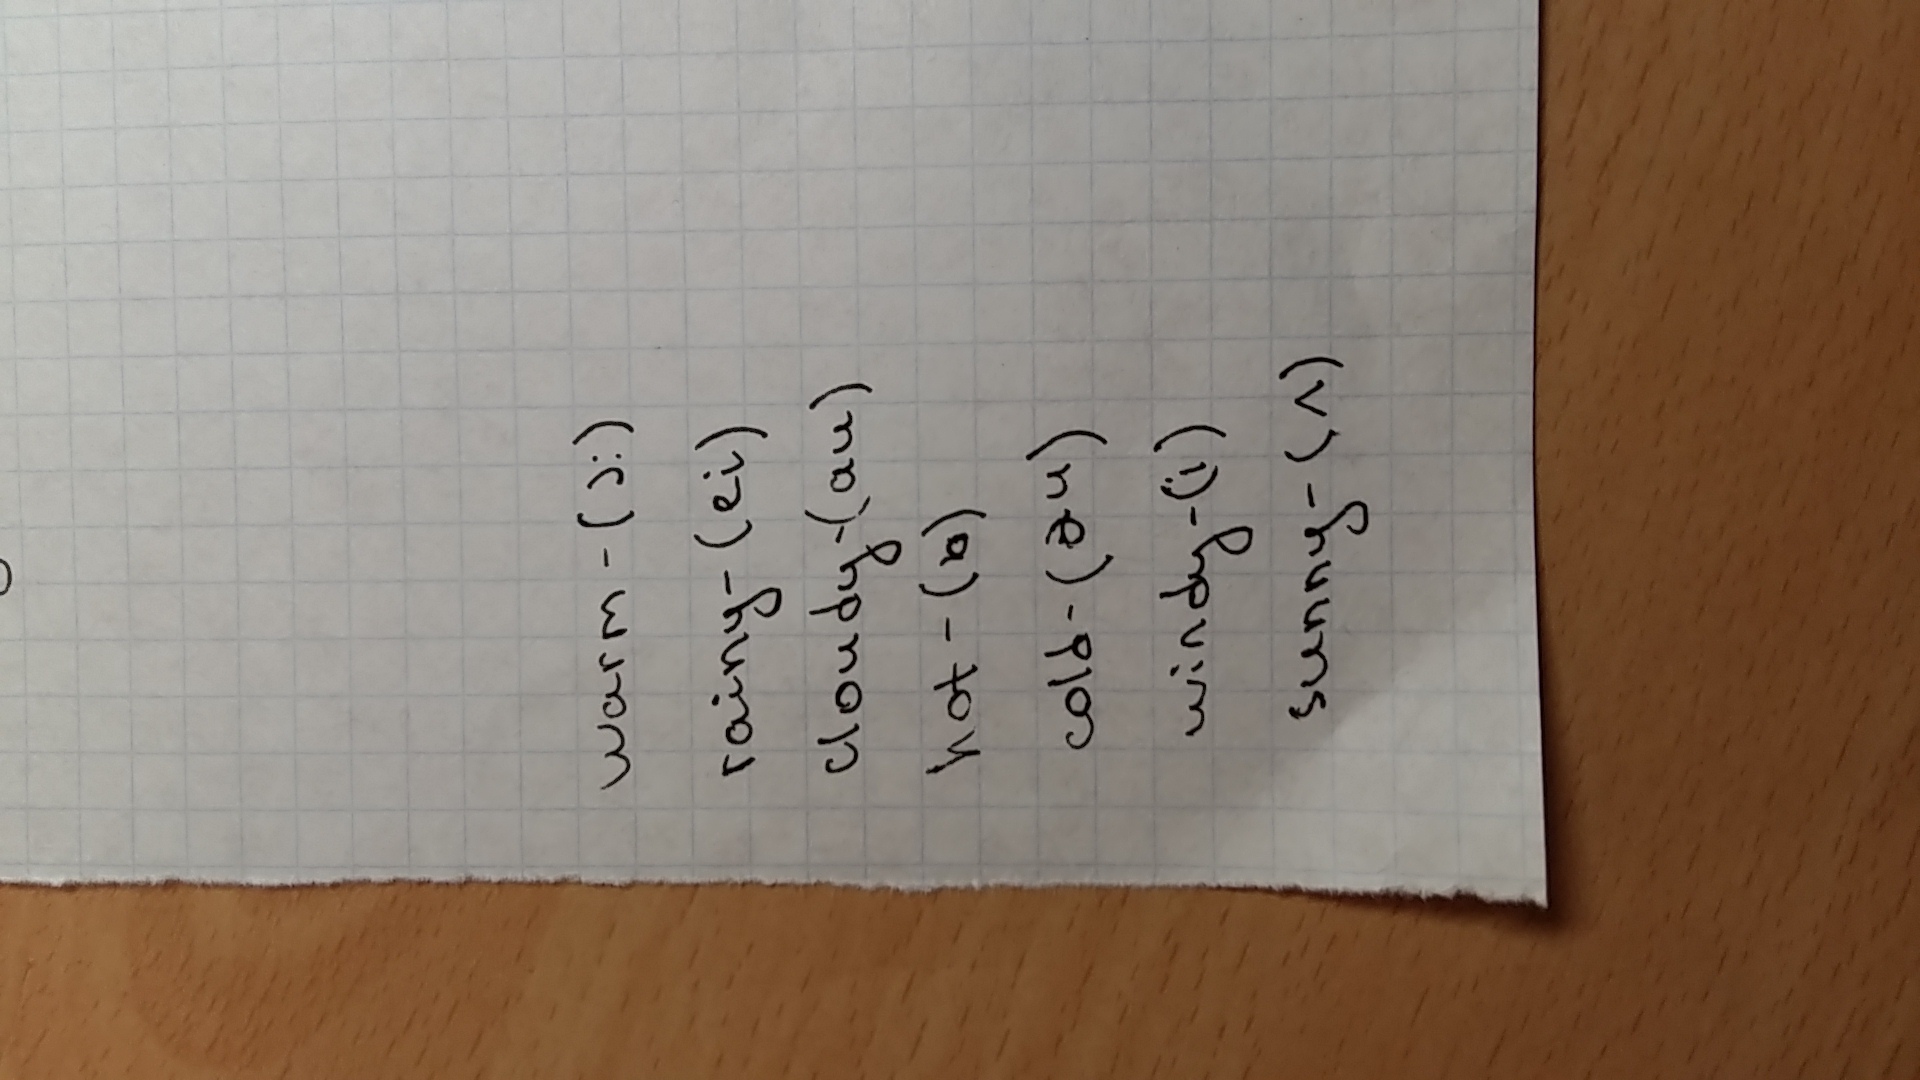 warm - (ɔ:)
rainy - (ei)
cloudy - (au)
hot - (ɒ)
cold - (əu)
windy - (i)
sunny - (ʌ)